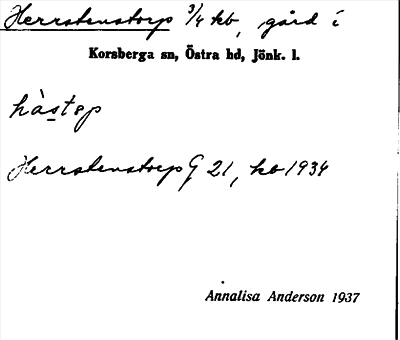 Herrstenstorp 3/4 kb, gård i
Korsberga sn, Östra hd, Jönk. l.
hàstep
Herrstenstorp G 21, kb 1934
Annalisa Anderson 1937